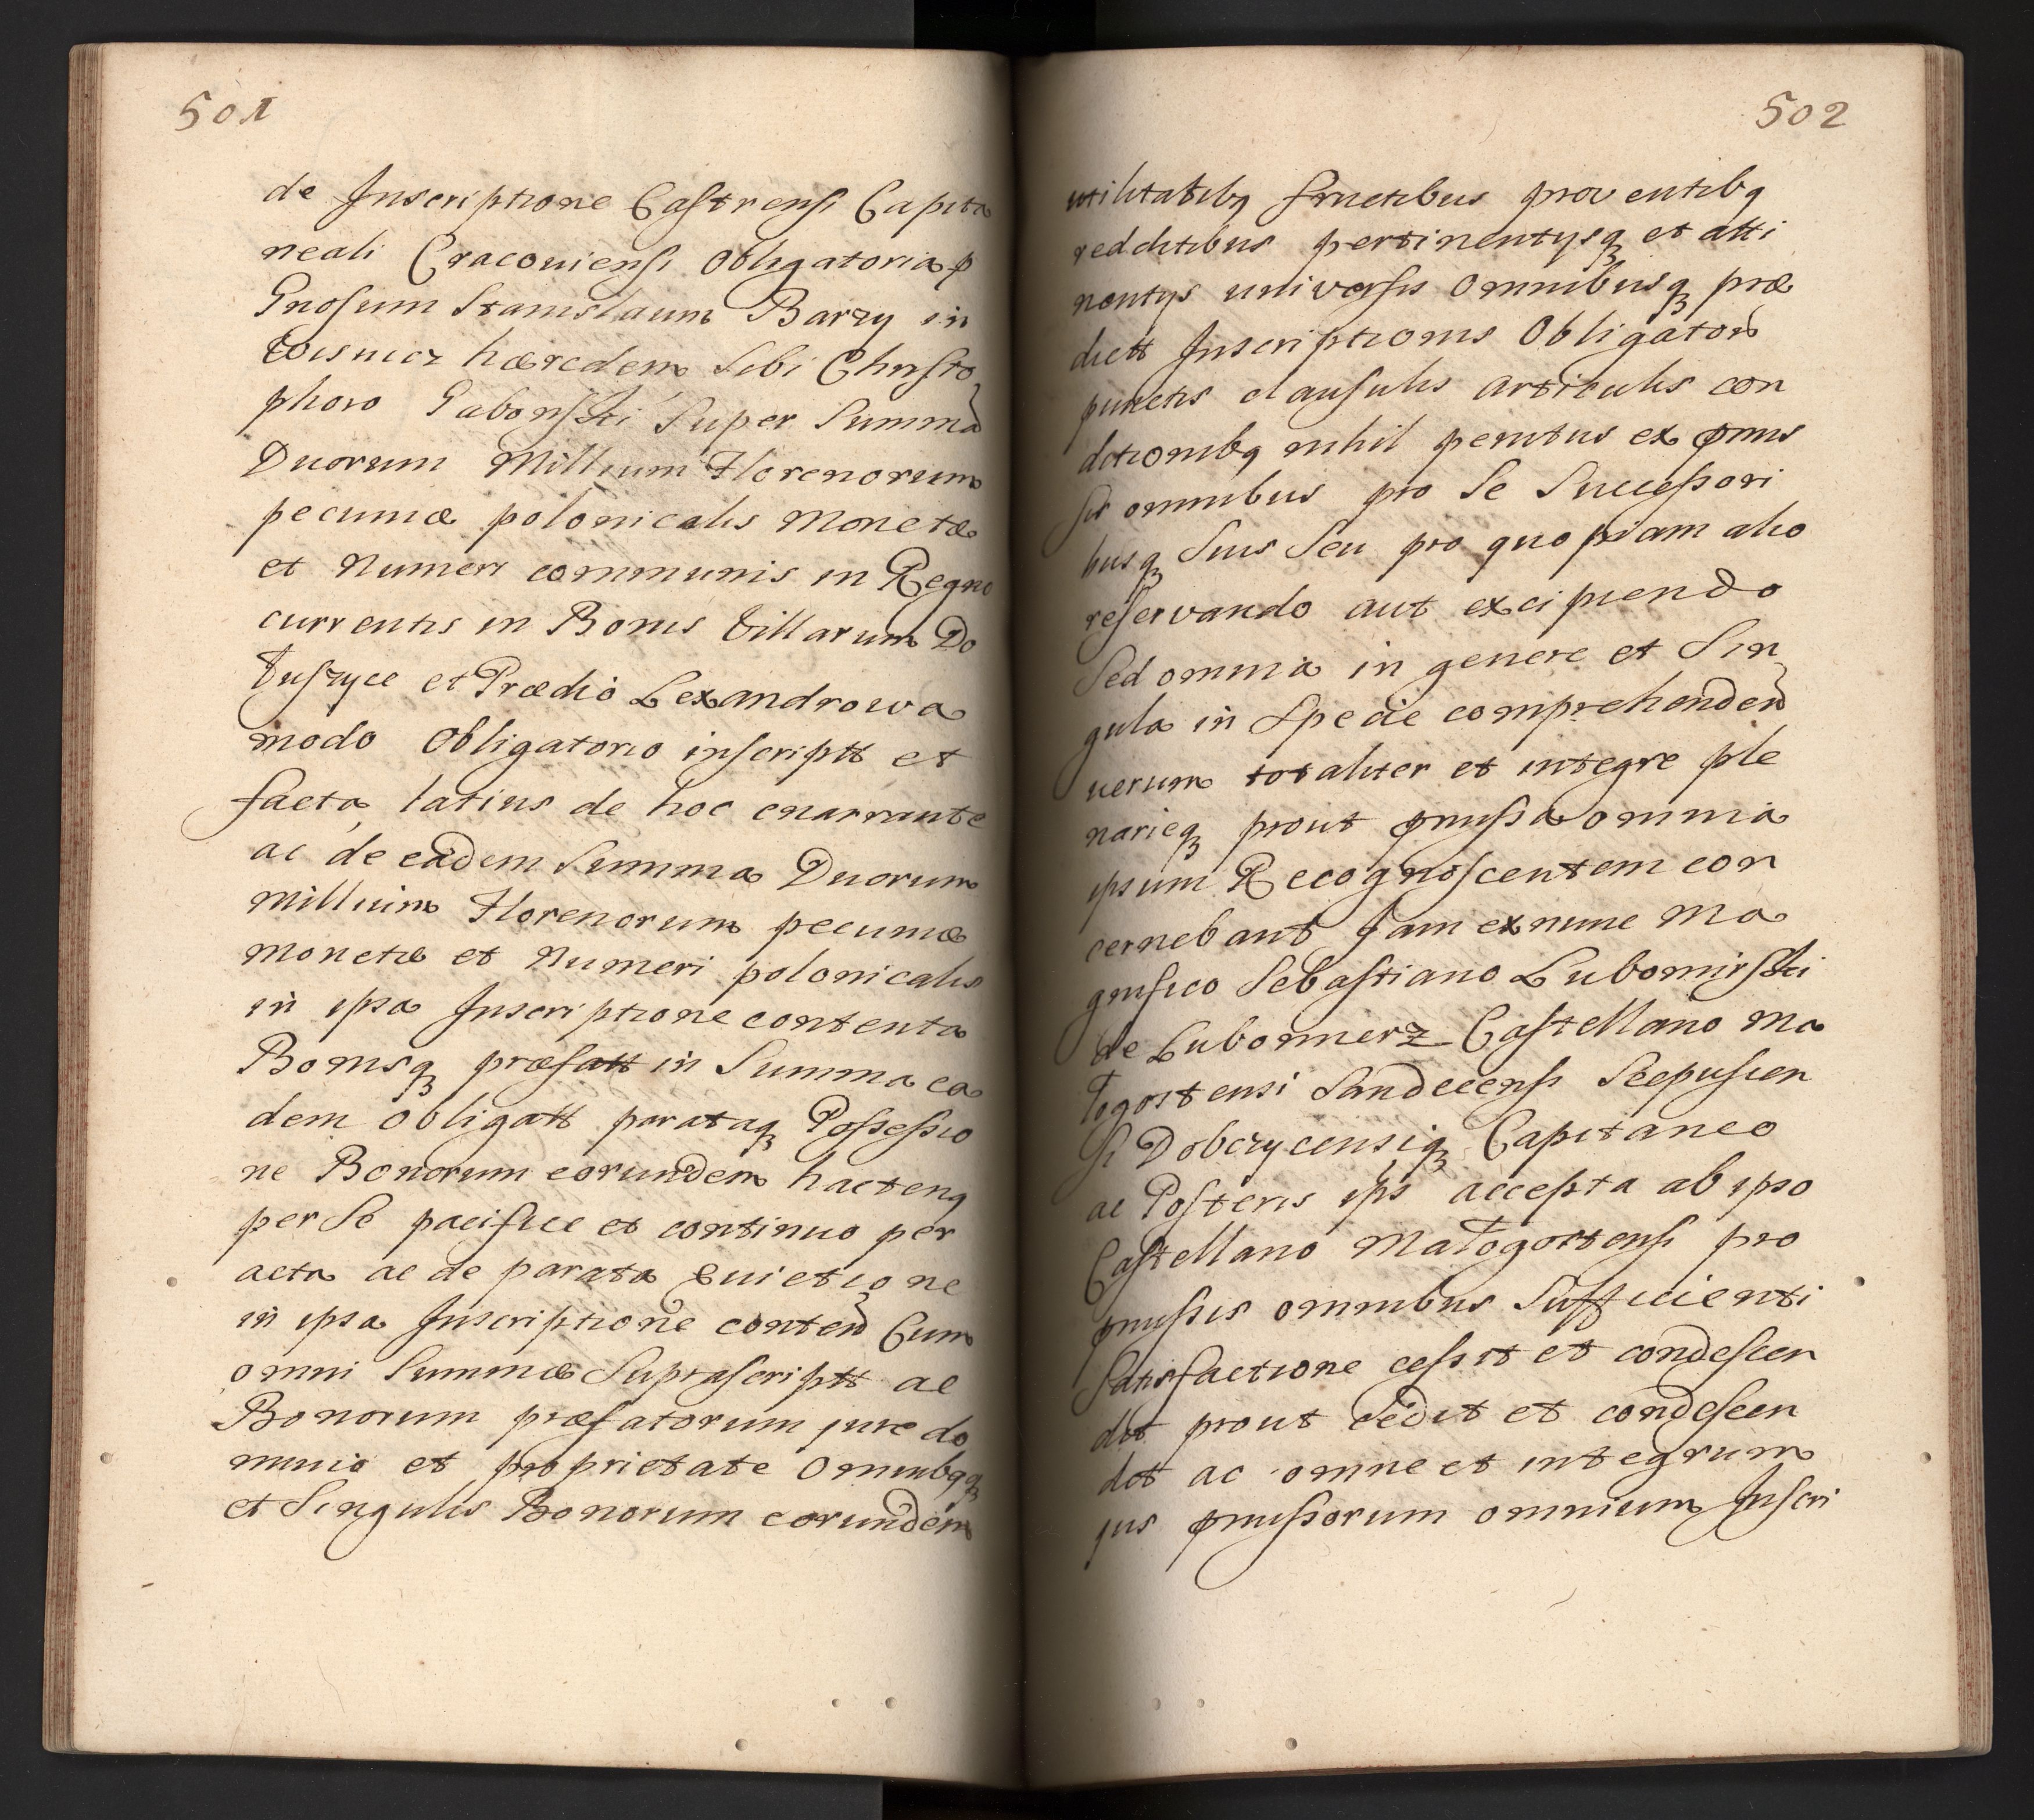 501
de Inscriptione Castrensi Capita
neali Cracoviensi Obligatoria p
Gnosum Stanislaum Barzy in
Wisnicz hæredem Sibi Christo
phoro Gaborski Super Summa
Duorum Millium Florenorum
pecuniæ polonicalis Monetæ
et Numeri communis in Regno
currentis in Bonis Villarum Do
łuszyce et Prædio Lexandrowa
modo Obligatorio inscriptt et
facta, latius de hoc enarrante
ac de eadem Summa Duorum
Millium Florenorum pecuniæ
Monetæ et Numeri polonicalis
in ipsa Inscriptione contenta
Bonisq præfatt in Summa ea
dem obligatt parataq Possessio
ne Bonorum eorundem hacteng
per Se pacifice et continuo per
acta ac de parata Euictione
in ipsa Inscriptione conten Cum
omni Summæ Suprascriptt ac
Bonorum præfatorum jure do
minio et proprietate Omnibqq
et Singulis Bonorum eorundem
502
utilitatibq fructibus proventibq
redditibus pertinentysq et atti
nentys universis Omnibusq præ
dictt Inscriptionis Obligator
punctis clausulis articulis con
ditionibq nihil penitus ex pmis
sis omnibus pro Se Successori
busq Suis Seu pro quopiam alio
reservando aut excipiendo
Sed omnia in genere et Sin
gula in Specie comprehenden
uerum totaliter et integre ple
narieq prout pmissa omnia
ipsum Recognoscentem con
cernebant Jam ex nunc Ma
gnifico Sebastiano Lubomirski
de Lubomierz Castellano Ma
łogostensi Sandecensi Scepusien
si Dobczycensiq Capitaneo
ac Posteris ips accepta ab ipso
Castellano Małogostensi pro
pmissis omnibus Sufficienti
Satisfactione cessit et condescen
dit prout cedit et condescen
dit ac omne et integrum
jus pmissorum omnium Inscri